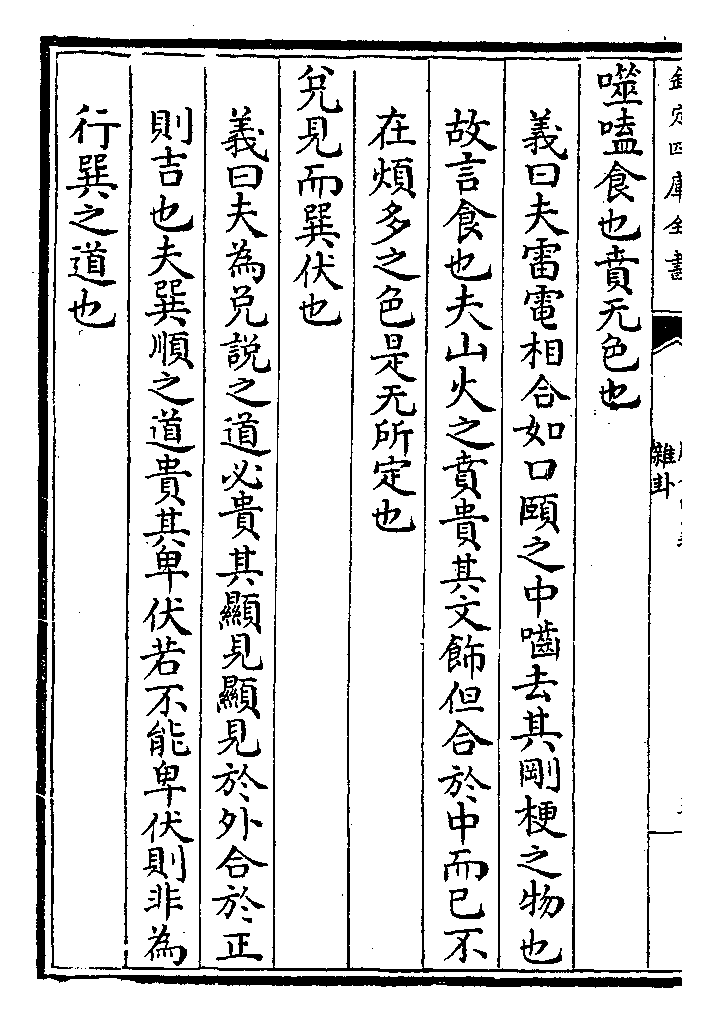 欽定四庫全書
雜卦
噬嗑食也賁无色也
義曰夫雷電相合如口頤之中嚙去其剛梗之物也
故言食也夫山火之賁貴其文飾但合於中而已不
在煩多之色是无所定也
兌見而巽伏也
義曰夫為兌說之道必貴其顯見顯見於外合於正
則吉也夫巽順之道貴其卑伏若不能卑伏則非為
行巽之道也